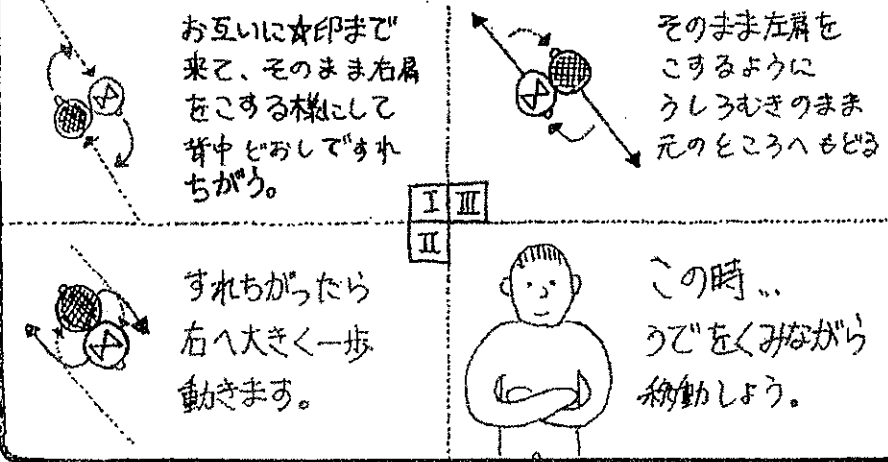 お互いに☆印まで
来て、そのまま右肩
をこする様にして
背中どおしですれ
ちがう。
I
すれちがったら
右へ大きく一歩
動きます。
II
そのまま左肩を
こするように
うしろむきのまま
元のところへもどる
III
この時…
うでをくみながら
移動しよう。